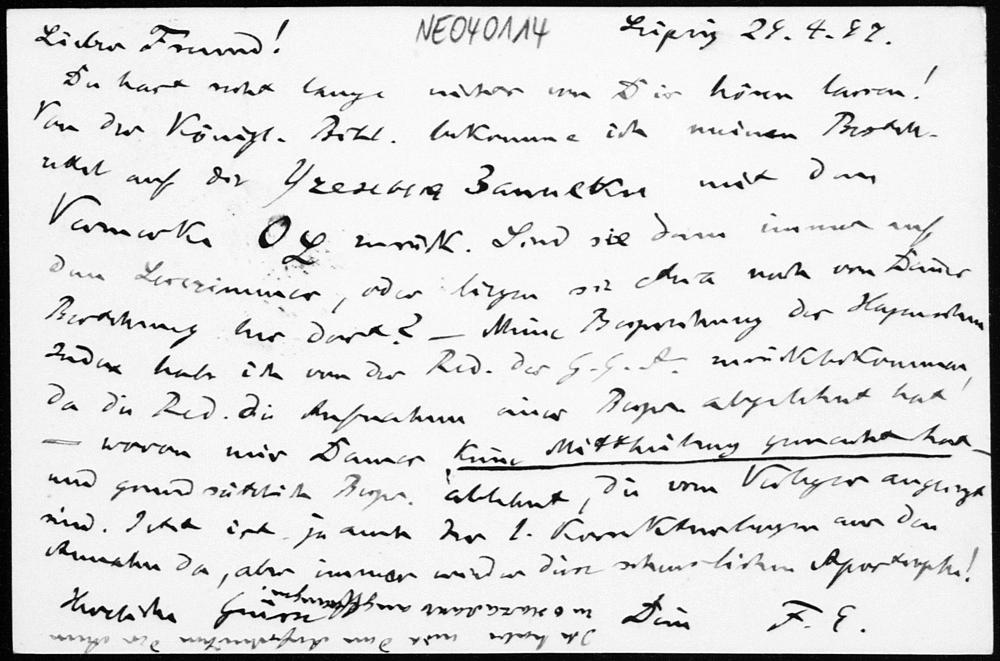 NE040114
Leipzig 29. 4. 97.
Lieber Freund!
Du hast recht lange nichts von Dir hören lassen!
Von der Königl. Bibl. bekomme ich meinen Bestell-
zettel auf die mit dem
Vermerke zurück. Sind sie denn immer auf
dem Lesezimmer, oder liegen sie etwa noch von Deiner
Bestellung her dort? – Meine Besprechung des
Index habe ich von der Red. der G. G. A. zurückbekommen,
da die Red. die Aufnahme einer Bespr. abgelehnt hat
– wovon mir keine Mittheilung gemacht hat –
und grundsätzlich Bespr. ablehnt, die vom Verleger angeregt
sind. Jetzt ist ja auch der 1. Korrekturbogen aus den
da, aber immer wieder diese scheusslichen Apostrophe!
Herzliche Grüsse
Dein F. E.